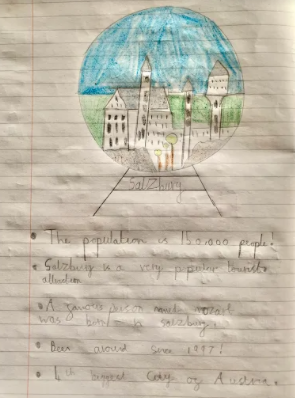 Salzburg
• The population is 150,000 people!
• Salzburg is a very popular tourist
attraction
• A famous person
was born in Salzburg.
• Been around since
• 4th biggest City of Austria.